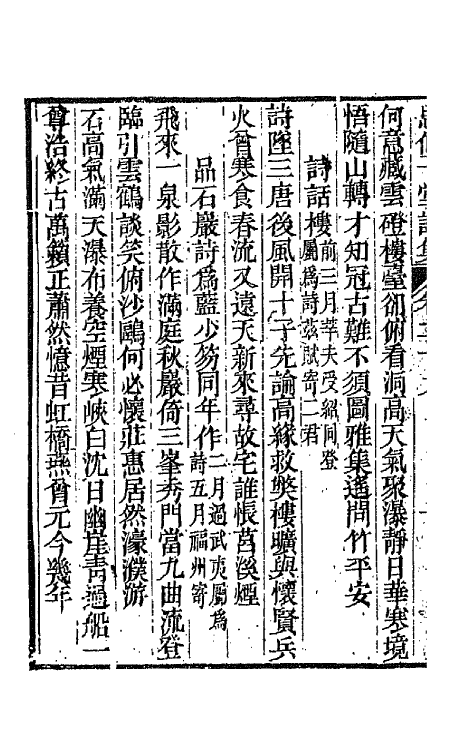 思伯子堂詩集
何意藏雲磴樓臺卻俯看洞高天氣聚瀑靜日華寒境
悟隨山轉才知冠古難不須圖雅集遙問竹平安
詩話樓
前三月莘夫受紹同登
屬爲詩茲賦寄二君
詩墜三唐後風開十子先論高緣救獘樓曠與懷賢兵
火曾寒食春流又遠天新來尋故宅誰悵莒溪煙
品石巖詩爲藍少笏同年作
二月過武夷屬爲
詩五月福州寄
飛來一泉影散作滿庭秋巖倚三峯秀門當九曲流登
臨引雲鶴談笑俯沙鷗何必懷莊惠居然濠濮游
石高氣滿天瀑布養空煙寒峽白沈日幽崖靑過船一
尊浩終古萬籟正蕭然憶昔虹橋燕曾元今幾年